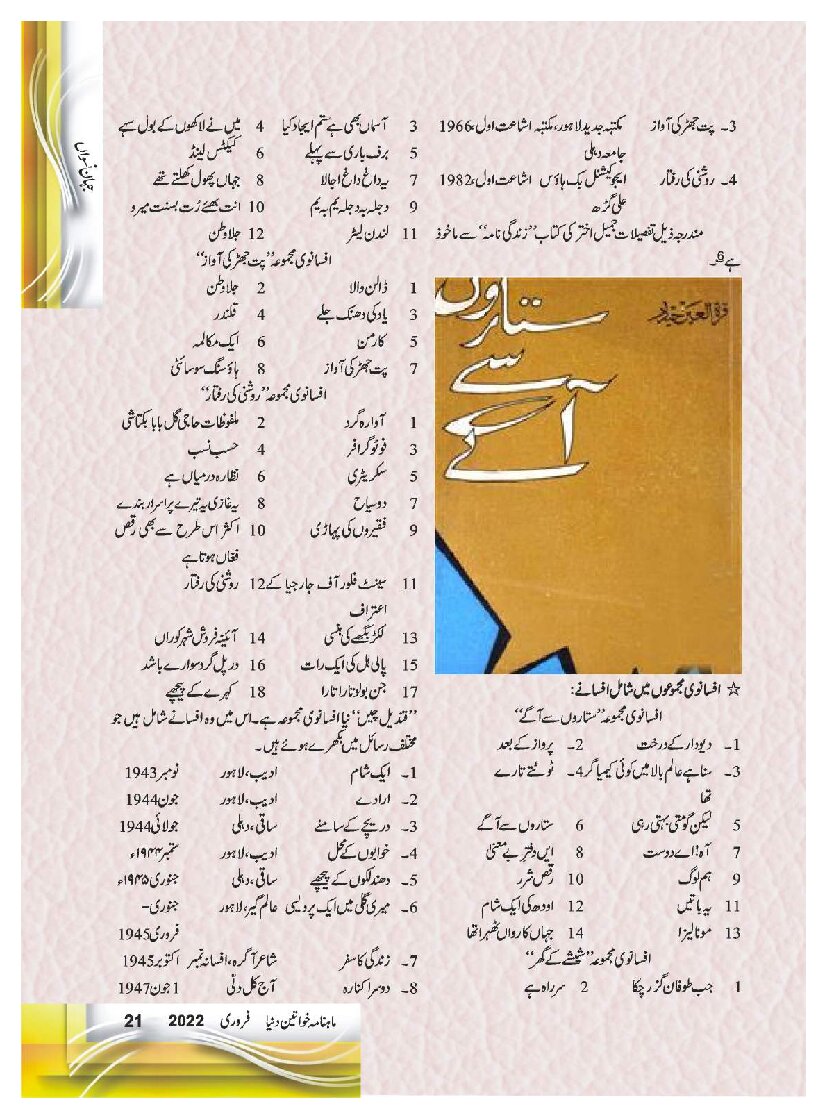 جہانِ نسواں
3۔ پت جھڑ کی آواز مکتبہ جدید لاہور، مکتبہ اشاعت اول، 1966
جامعہ دہلی
4۔ روشنی کی رفتار ایجوکیشنل بک ہاؤس اشاعت اول، 1982
علی گڑھ
مندرجہ ذیل تفصیلات جمیل اختر کی کتاب ”زندگی نامہ“ سے ماخوذ
ہے
قرۃ العین حیدر
ستاروں
سے
آگے
☆ افسانوی مجموعوں میں شامل افسانے:
افسانوی مجموعہ ”ستاروں سے آگے“
1۔ دیودار کے درخت 2۔ پرواز کے بعد
3۔ سنا ہے عالم بالا میں کوئی کیمیا گر 4۔ ٹوٹتے تارے
تھا
5 لیکن گومتی بہتی رہی 6 ستاروں سے آگے
7 آہ! اے دوست 8 ایں دفتر بے معنیٰ
9 ہم لوگ 10 رقص شرر
11 یہ باتیں 12 اودھ کی ایک شام
13 مونا لیزا 14 جہاں کارواں ٹھہرا تھا
افسانوی مجموعہ ”شیشے کے گھر“
1 جب طوفان گزر چکا 2 سرراہ ہے
3 آسماں بھی ہے ستم ایجاد کیا 4 میں نے لاکھوں کے بول سہے
5 برف باری سے پہلے 6 کیکٹس لینڈ
7 یہ داغ داغ اجالا 8 جہاں پھول کھلتے تھے
9 دجلہ بہ دجلہ یم بہ یم 10 انت بھئے رُت بسنت میرو
11 لندن لیٹر 12 جلاوطن
افسانوی مجموعہ ”پت جھڑ کی آواز“
1 ڈالن والا 2 جلاوطن
3 یاد کی دھنک جلے 4 قلندر
5 کارمن 6 ایک مکالمہ
7 پت جھڑ کی آواز 8 ہاؤسنگ سوسائٹی
افسانوی مجموعہ ”روشنی کی رفتار“
1 آوارہ گرد 2 ملفوظات حاجی گل بابا بیکتاشی
3 فوٹو گرافر 4 حسب نسب
5 سکریٹری 6 نظارہ درمیاں ہے
7 دوسیاح 8 یہ غازی یہ تیرے پراسرار بندے
9 فقیروں کی پہاڑی 10 اکثر اس طرح سے بھی رقص
فغاں ہوتا ہے
11 سینٹ فلور آف جارجیا کے 12 روشنی کی رفتار
اعتراف
13 لکڑبگھے کی ہنسی 14 آئینہ فروش شہر کوراں
15 پالی ہل کی ایک رات 16 دریں گرد سوارے باشد
17 جن بولو تارا تارا 18 کہرے کے پیچھے
”قندیل چیں“ نیا افسانوی مجموعہ ہے۔ اس میں وہ افسانے شامل ہیں جو
مختلف رسائل میں بکھرے ہوئے ہیں۔
1۔ ایک شام ادیب، لاہور نومبر 1943
2۔ ارادے ادیب، لاہور جون 1944
3۔ دریچے کے سامنے ساقی، دہلی جولائی 1944
4۔ خوابوں کے محل ادیب، لاہور ستمبر ۱۹۴۴ء
5۔ دھندلکوں کے پیچھے ساقی، دہلی جنوری ۱۹۴۵ء
6۔ میری گلی میں ایک پردیسی عالم گیر، لاہور جنوری۔
فروری 1945
7۔ زندگی کا سفر شاعر آگرہ، افسانہ نمبر اکتوبر 1945
8۔ دوسرا کنارہ آج کل دلّی 1 جون 1947
ماہنامہ خواتین دنیا فروری 2022 21